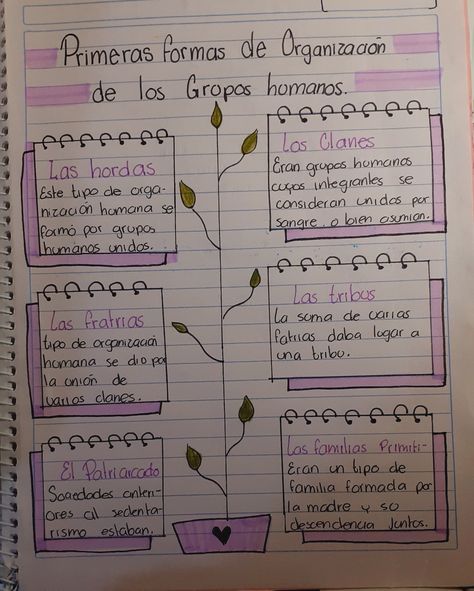 Primeras formas de Organización
de los Grupos humanos.
Las hordas
Este tipo de orga-
nización humana se
formó por grupos
humanos unidos.
Los Clanes
Eran grupos humanos
cuyos integrantes se
consideran unidos por
sangre, o bien asumian.
Las fratrias
tipo de organización
humana se dio por
la unión de
varios clanes.
Las tribus
La suma de varias
fatrias daba lugar a
una tribu.
El Patriarcado
Sociedades anteri-
ores al sedenta-
rismo estaban.
Las familias Primiti-
Eran un tipo de
familia formada por
la madre y so
descendencia juntos.